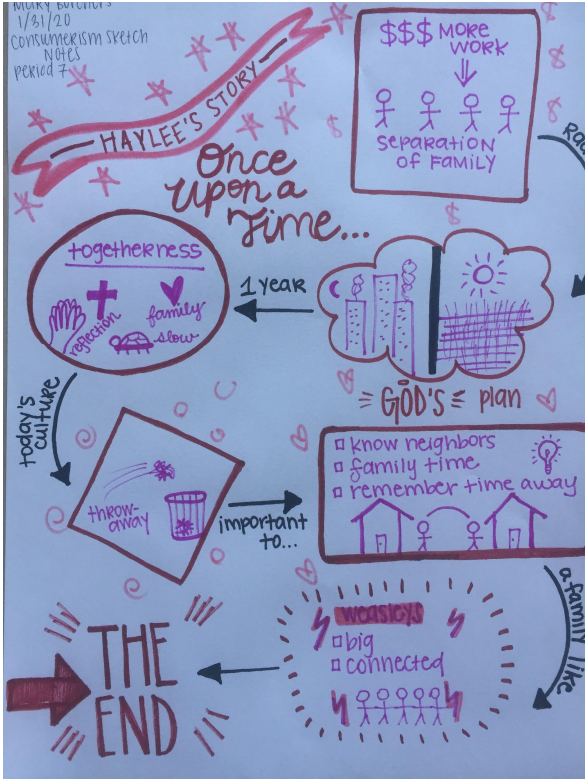 1/31/20
Consumerism Sketch
Notes
period 7
HAYLEE'S STORY
Once
upon a
Time...
$$$ MORE
WORK
separation
of FAMILY
1 YEAR
togetherness
reflection
family
slow
GOD'S plan
today's
culture
throw-
away
important
to...
know neighbors
family time
remember time away
a family like
weasleys
big
connected
THE
END